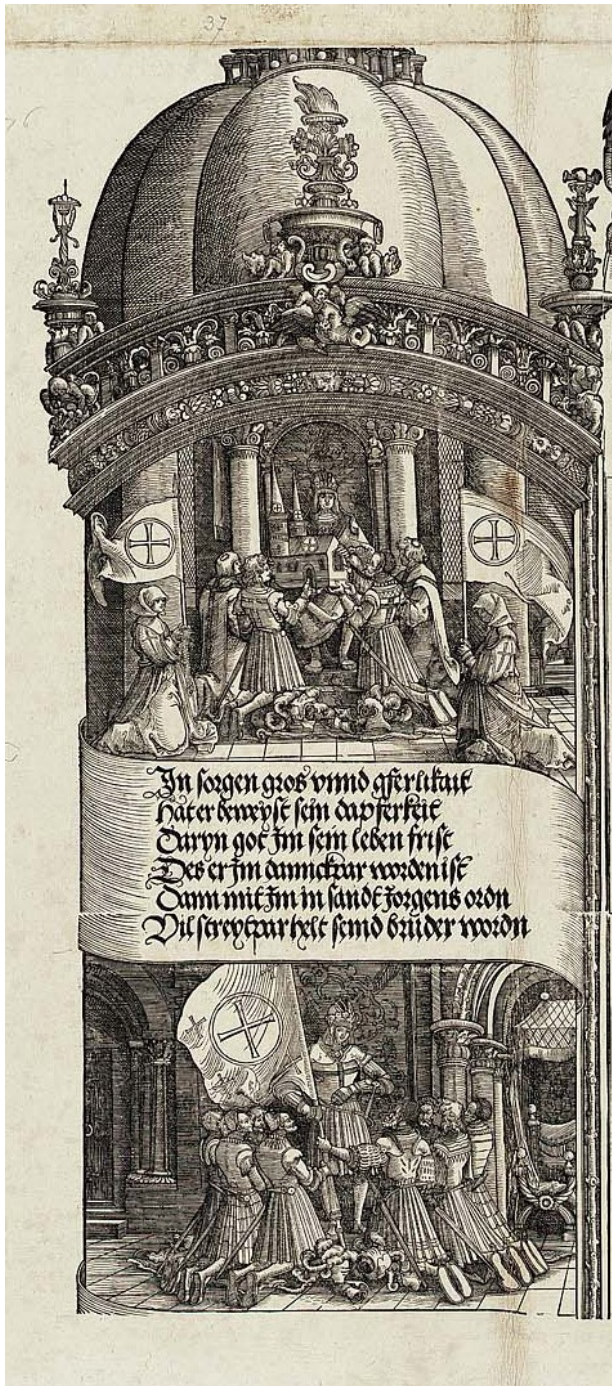 37
In sorgen gros vnnd gferlikait
Hat er beweyst sein dapferkeit
Daryn got Im sein leben frist
Des er Im dannckpar worden ist
Dann mit Im in sandt Jorgens ordn
Vil streytpar helt seind brüder wordn